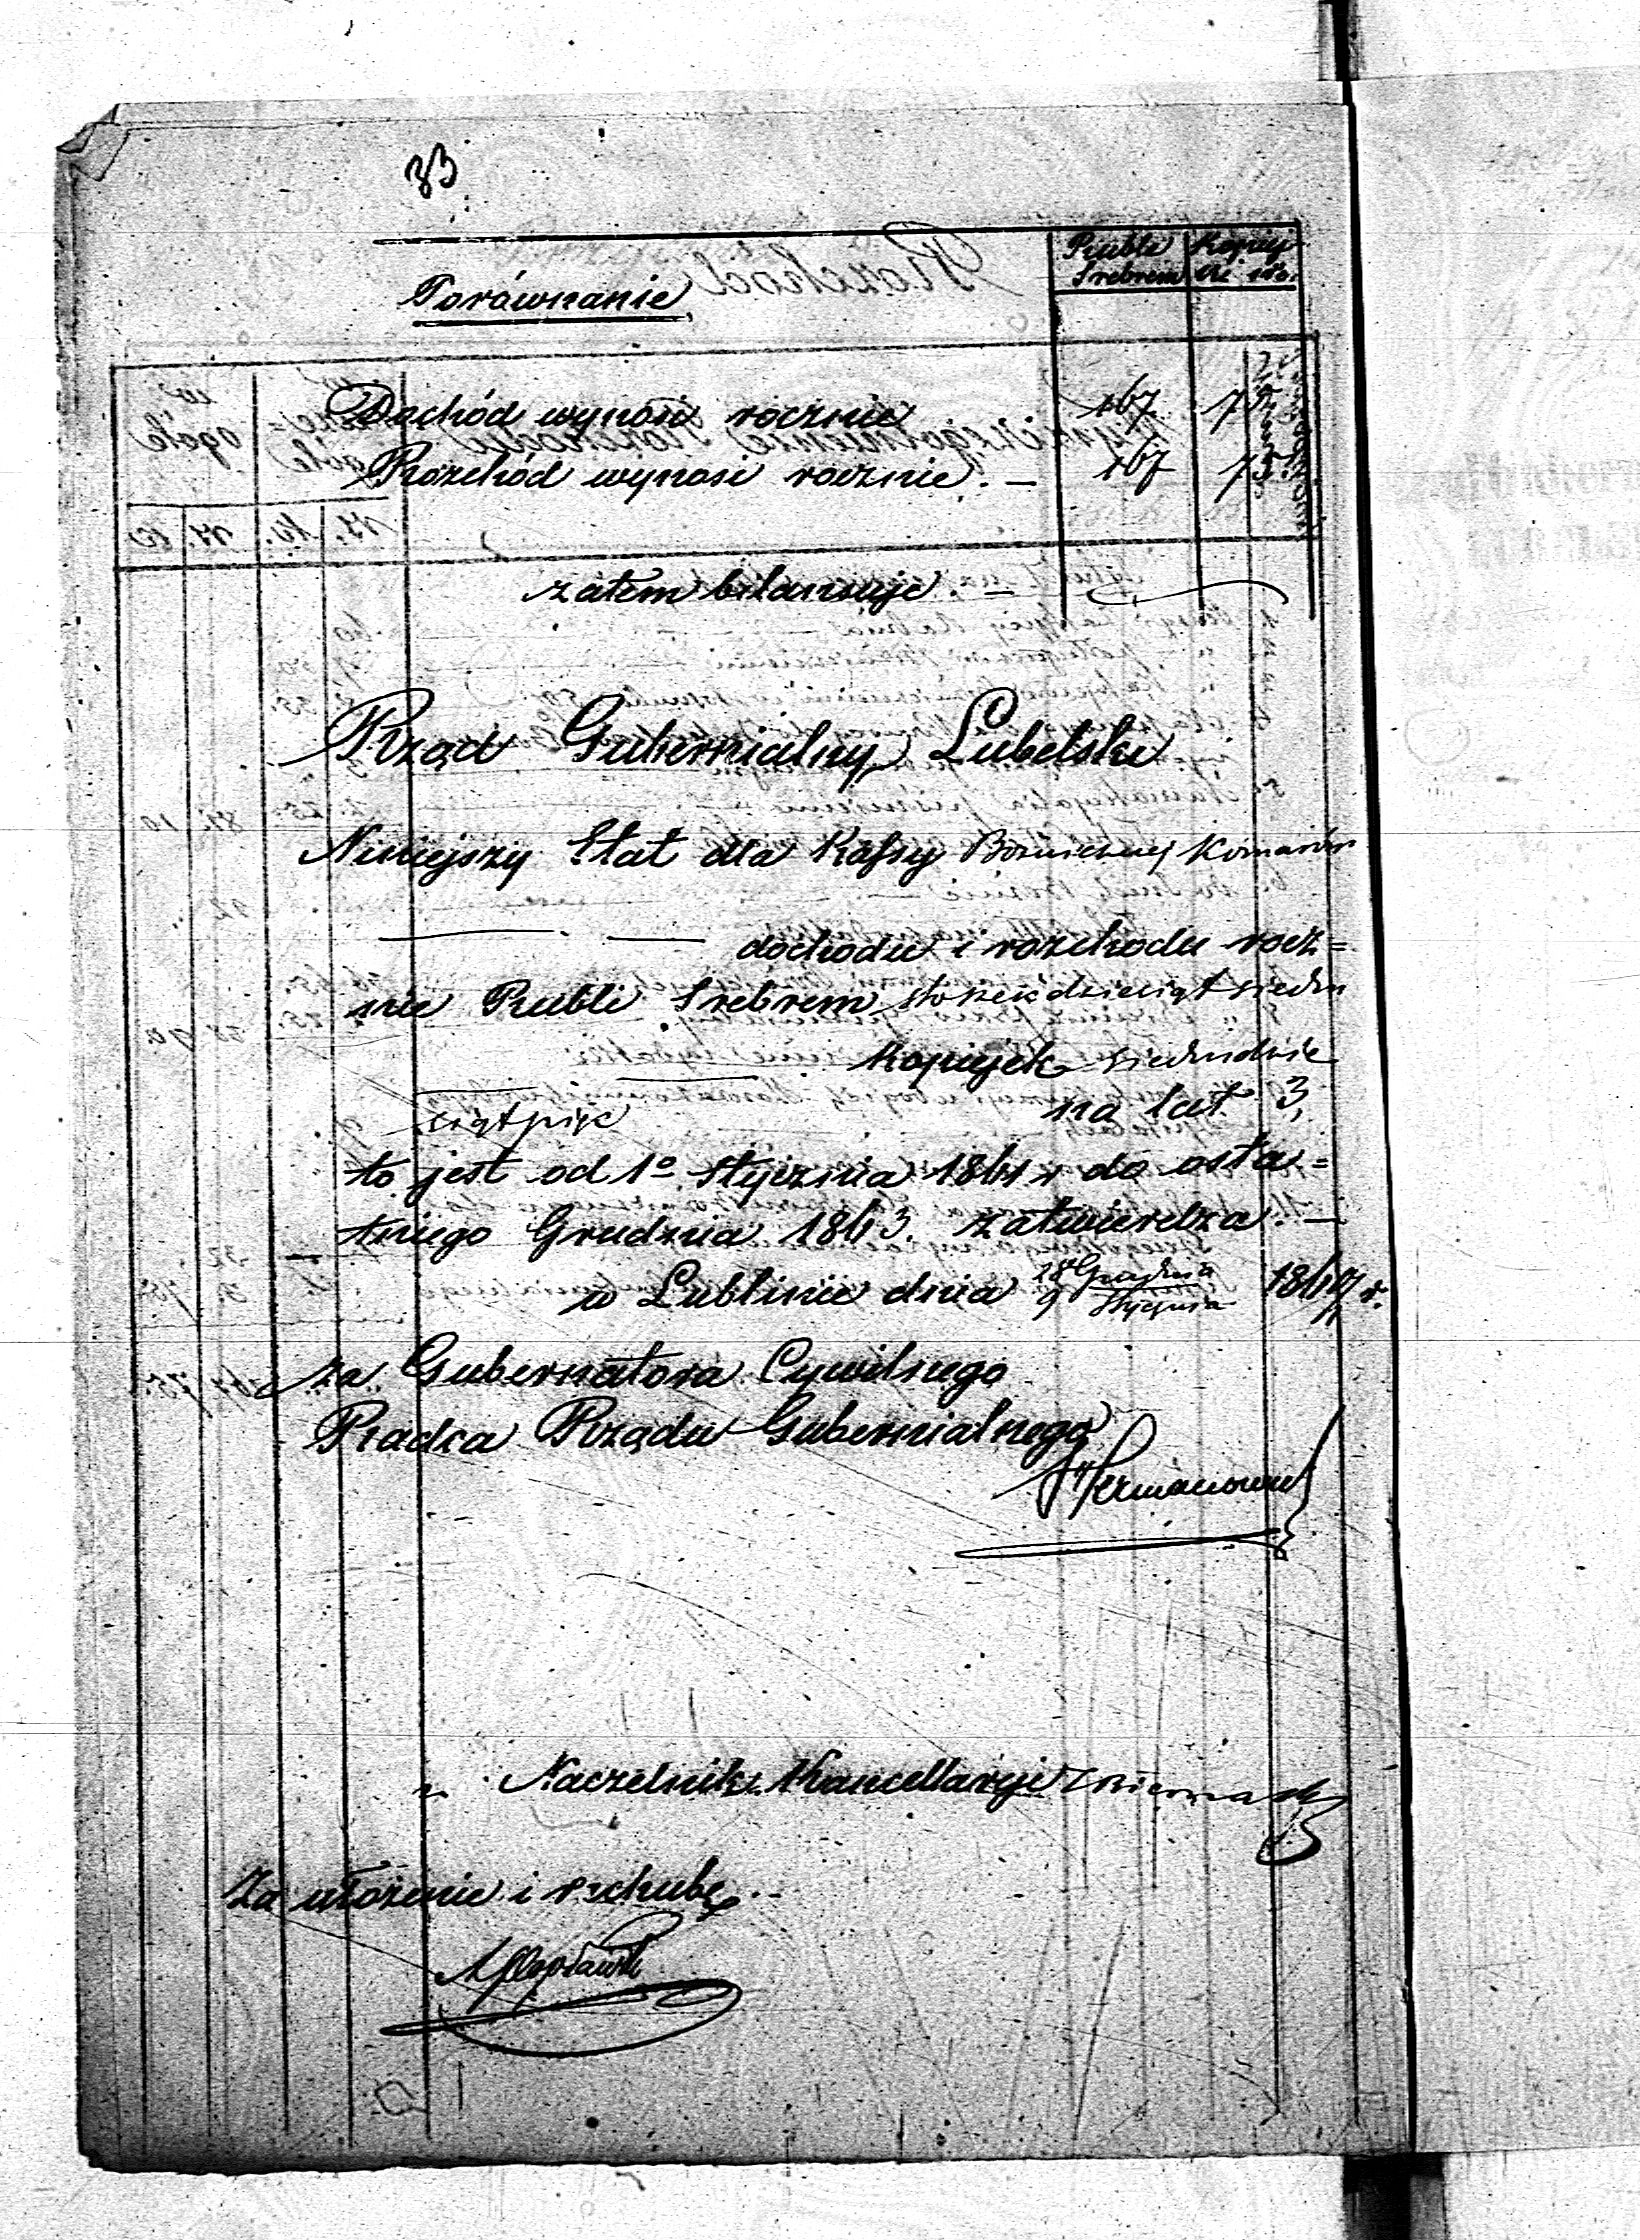 33
Rubli Kopiej
Srebrem
Porównanie
Dochód wynosi rocznie 167 75
Rozchód wynosi rocznie. — 167 75
zatem bilansuje. —
Rząd Gubernialny Lubelski
Niniejszy Etat dla Kassy Bożnicznej Komarów
dochodu i rozchodu rocz=
nie Rubli Srebrem sto sześćdziesiąt siedm
Kopiejek siedmdzie
siątpięć na lat 3,
to jest od 1º Stycznia 1861 r do osta=
tniego Grudnia 1863. zatwierdza. —
w Lublinie dnia 28 Grudnia
9 Stycznia
za Gubernatora Cywilnego
Radca Rządu Gubernialnego
Naczelnik Kancellaryi
Za ułożenie i rachubę